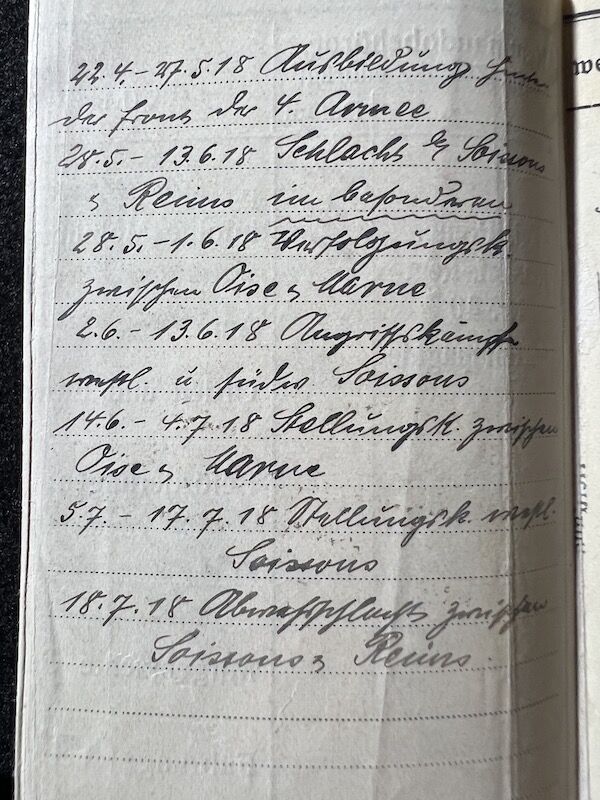 22.4.–27.5.18 Ausbildung hinter
der Front der 4. Armee
28.5.–13.6.18 Schlacht bei Soissons
u Reims im besonderen
28.5.–1.6.18 Verfolgungsk.
zwischen Oise u Marne
2.6.–13.6.18 Angriffskämpfe
westl. u. südw Soissons
14.6.–4.7.18 Stellungsk. zwischen
Oise u Marne
5.7.–17.7.18 Stellungsk. westl.
Soissons
18.7.18 Abwehrschlacht zwischen
Soissons u Reims